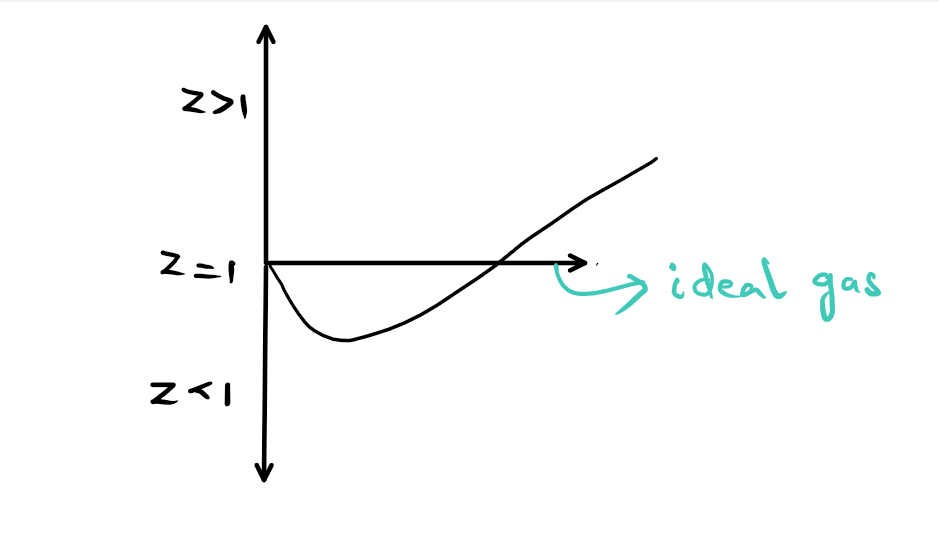 z>1
z=1
ideal gas
z<1